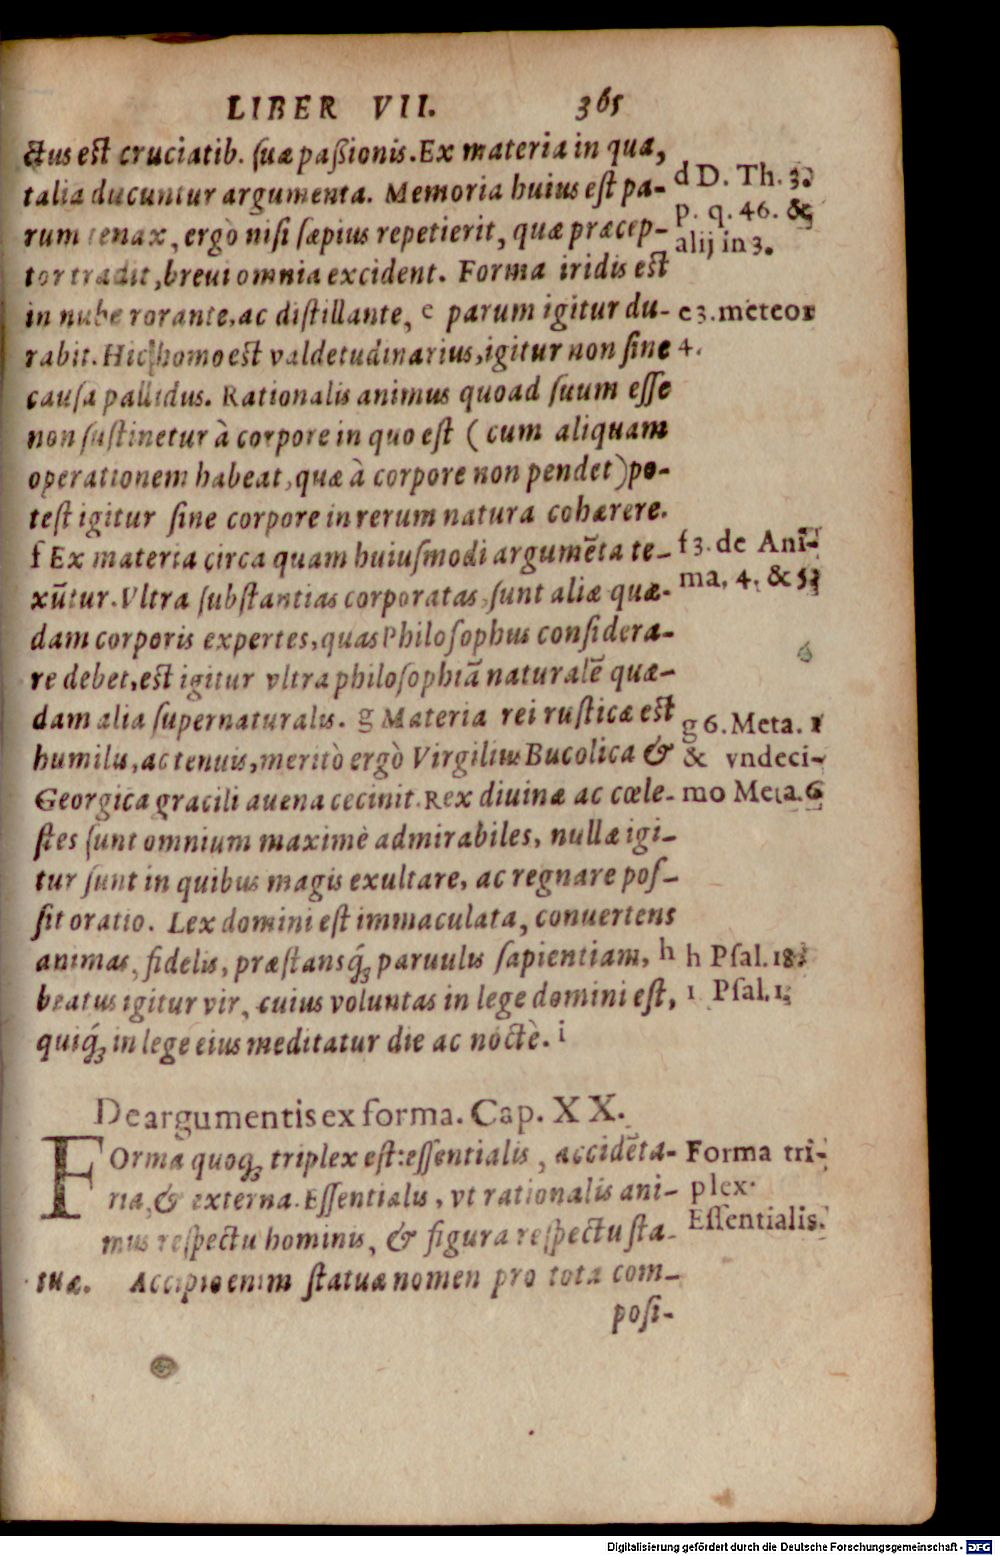 LIBER VII. 365
ctus est cruciatib. suæ passionis. Ex materia in qua,
talia ducuntur argumenta. Memoria huius est pa-
rum tenax, ergò nisi sæpius repetierit, quæ præcep-
tor tradit, breui omnia excident. Forma iridis est
in nube rorante, ac distillante, e parum igitur du-
rabit. Hic homo est valdetudinarius, igitur non sine
causa pallidus. Rationalis animus quoad suum esse
non sustinetur à corpore in quo est (cum aliquam
operationem habeat, quæ à corpore non pendet) po-
test igitur sine corpore in rerum natura cohærere.
f Ex materia circa quam huiusmodi argumẽta te-
xũtur. Vltra substantias corporatas, sunt aliæ quæ-
dam corporis expertes, quas Philosophus considera-
re debet, est igitur vltra philosophiã naturalẽ quæ-
dam alia supernaturalis. g Materia rei rusticæ est
humilis, ac tenuis, meritò ergò Virgilius Bucolica &
Georgica gracili auena cecinit. Rex diuinæ ac cœle-
stes sunt omnium maximè admirabiles, nullæ igi-
tur sunt in quibus magis exultare, ac regnare pos-
sit oratio. Lex domini est immaculata, conuertens
animas, fidelis, præstansq́; paruulis sapientiam, h
beatus igitur vir, cuius voluntas in lege domini est,
quiq́; in lege eius meditatur die ac noctè. i
d D. Th. 3.
p. q. 46. &
alij in 3.
e 3. meteor
4.
f 3. de Ani-
ma. 4. & 5
g 6. Meta. 1
& vndeci-
mo Meta. 6
h Psal. 18.
i Psal. 1.
De argumentis ex forma. Cap. XX.
FOrma quoq; triplex est: essentialis, accidẽta-
ria, & externa. Essentialis, vt rationalis ani-
mus respectu hominis, & figura respectu sta-
tuæ. Accipio enim statuæ nomen pro tota com-
posi-
Forma tri-
plex.
Essentialis.
Digitalisierung gefördert durch die Deutsche Forschungsgemeinschaft - DFG